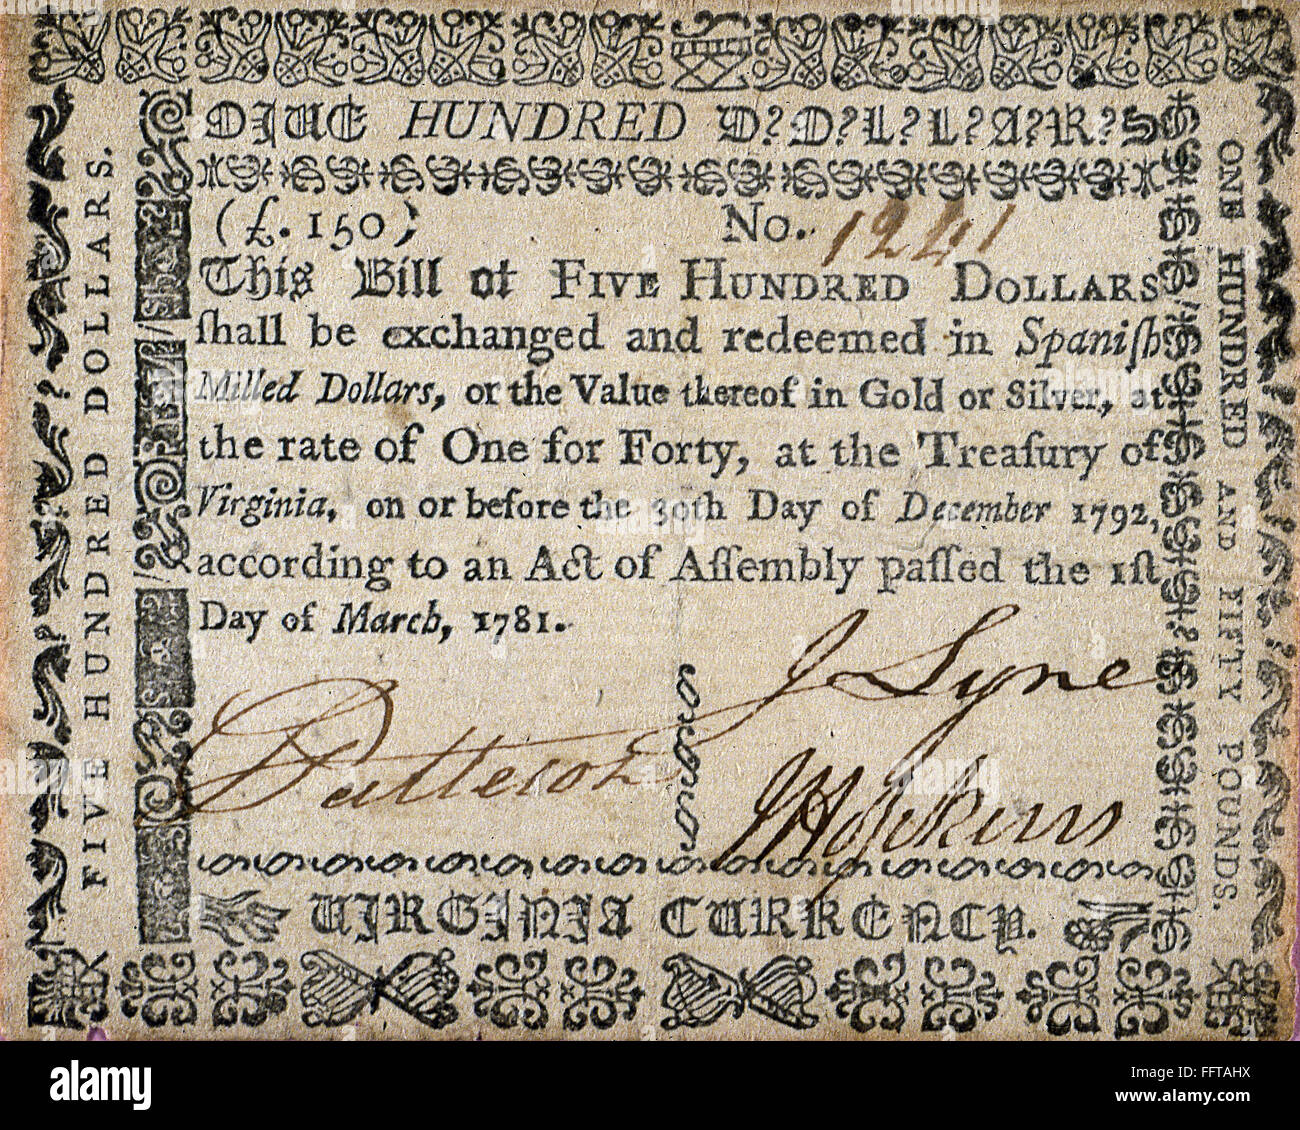 OJUE HUNDRED D?D?L?L?A?R?S
(£. 150) No. 1241
This Bill of FIVE HUNDRED DOLLARS
ſhall be exchanged and redeemed in Spaniſh
Milled Dollars, or the Value thereof in Gold or Silver, at
the rate of One for Forty, at the Treaſury of
Virginia, on or before the 30th Day of December 1792,
according to an Act of Aſſembly paſſed the 1ſt
Day of March, 1781.
J Lyne
J Hopkins
VIRGINIA CURRENCY.
FIVE HUNDRED DOLLARS.
ONE HUNDRED AND FIFTY POUNDS.
alamy
Image ID: FFTAHX
www.alamy.com